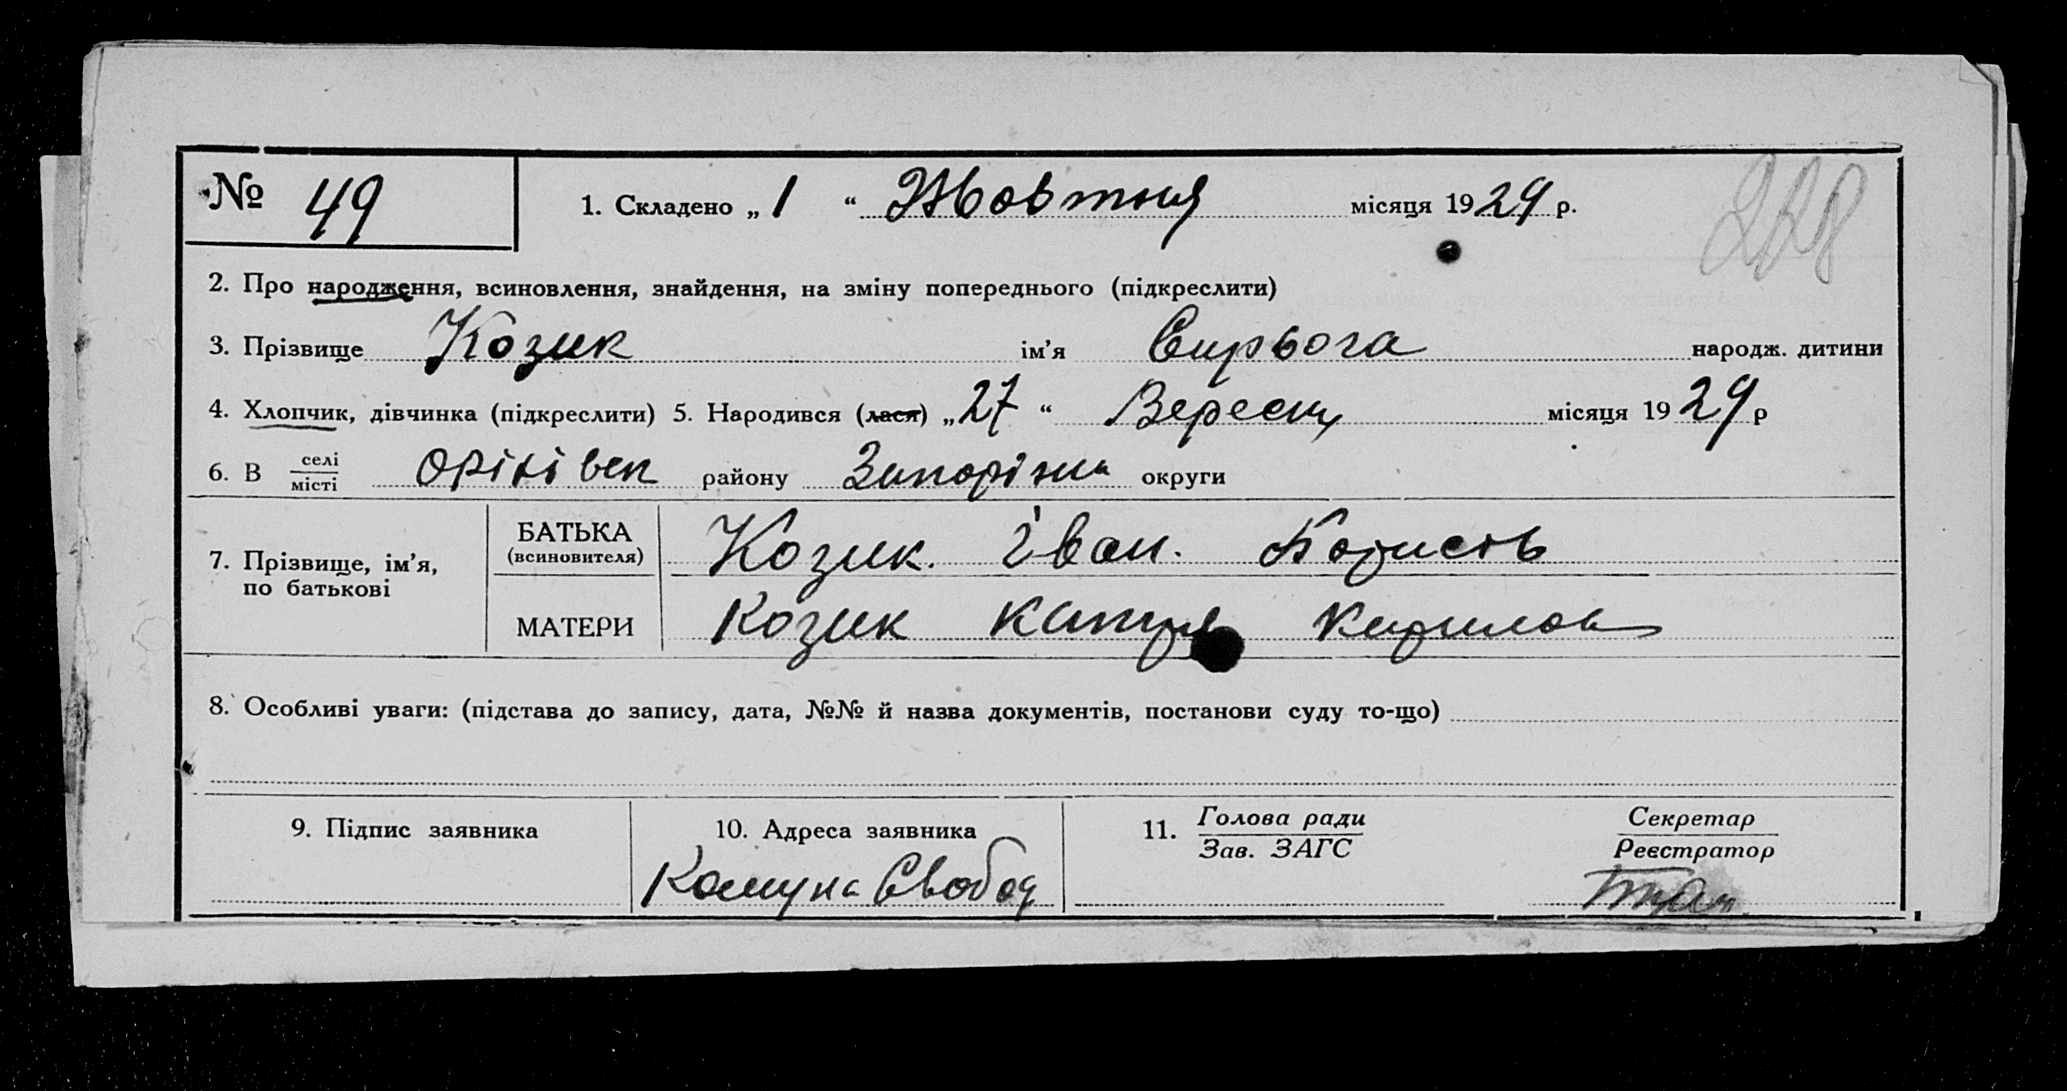 № 49 1. Складено „ 1 “ Жовтня місяця 1929 р. 228
2. Про народження, всиновлення, знайдення, на зміну попереднього (підкреслити)
3. Прізвище Козик ім’я Сирьога народж. дитини
4. Хлопчик, дівчинка (підкреслити) 5. Народився (лася) „ 27 “ Вересц місяця 1929 р
6. В селі місті Орітівск району Запоріжн округи
7. Прізвище, ім’я, по батькові
БАТЬКА (всиновителя) Козик. Іван. Борисов
МАТЕРИ Козик Кирилов
8. Особливі уваги: (підстава до запису, дата, №№ й назва документів, постанови суду то-що)
9. Підпис заявника 10. Адреса заявника 11. Голова ради Секретар
Зав. ЗАГС Реєстратор
Комуна Свобод